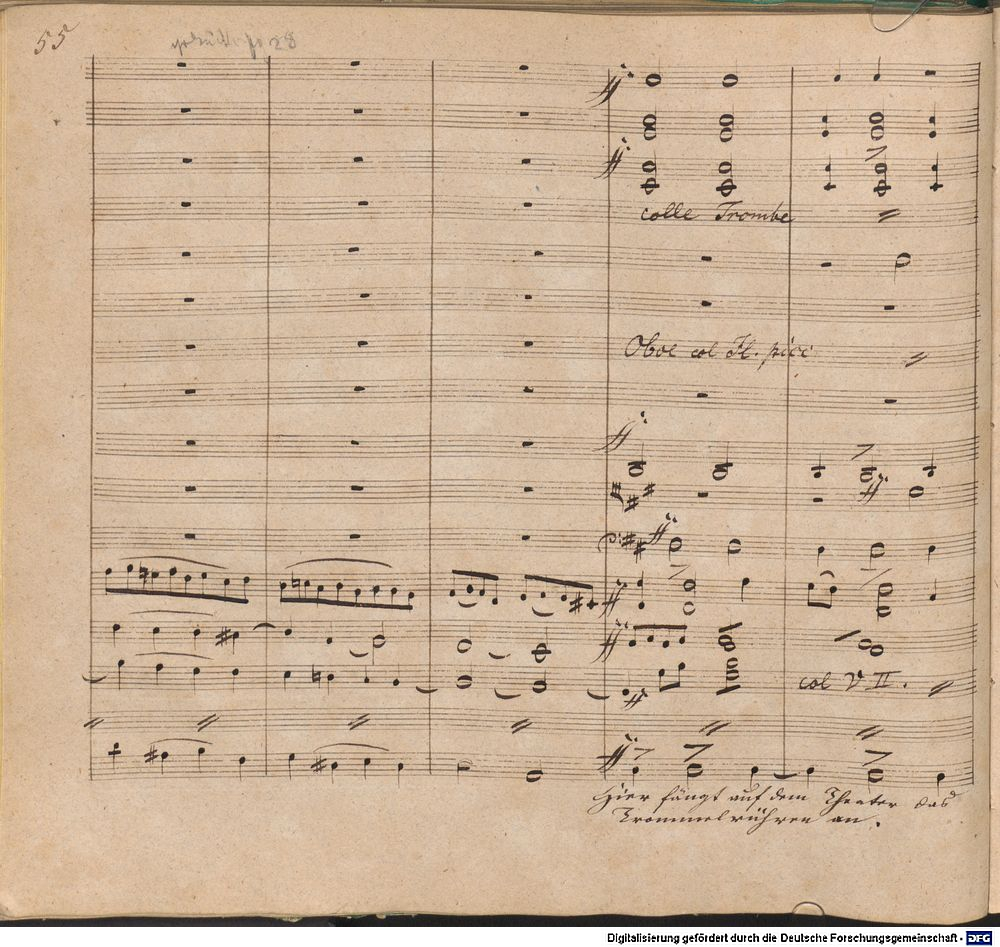 55
28
ff
ff
colle Trombe
Oboe col Fl. picc
ff
ff
ff
ff
ff
ff
ff
col V II.
ff
Hier fängt auf dem Theater das
Trommelrühren an.
Digitalisierung gefördert durch die Deutsche Forschungsgemeinschaft - DFG